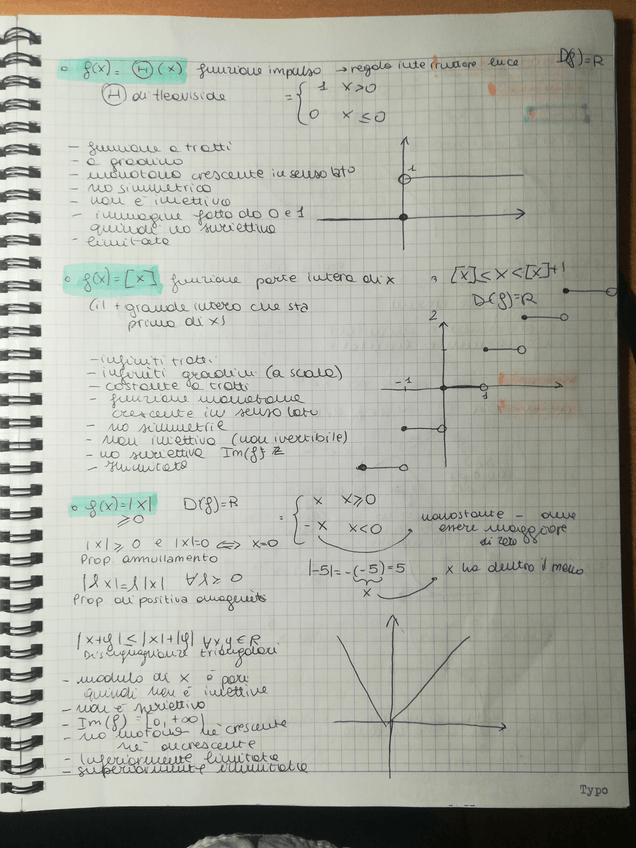 f(x) = Ⓗ(x) funzione impulso → regola interruttore luce D(f)=R
Ⓗ di Heaviside = { 1 x>0
0 x ≤ 0
- funzione a tratti
- a gradino
- monotona crescente in senso lato
- no simmetrica
- non è iniettiva
- immagine fatta da 0 e 1
quindi no suriettiva
- limitata
1
f(x) = [x] funzione parte intera di x [x] ≤ x < [x]+1
(il + grande intero che sta D(f)=R
prima di x)
2
- infiniti tratti
- infiniti gradini (a scala)
- costante a tratti
- funzione monotona
crescente in senso lato
- no simmetrie
- non iniettiva (non invertibile)
- no suriettiva Im(f) Z
- illimitata
-1
1
f(x) = |x| D(f)=R = { x x≥0
≥0
-x x<0
nonostante - deve
essere maggiore
di zero
|x| ≥ 0 e |x|=0 ⇔ x=0
Prop annullamento
|-5| = -(-5) = 5
x
x ha dentro il meno
|λx| = λ|x| ∀λ ≥ 0
Prop di positiva omogeneità
|x+y| ≤ |x|+|y| ∀x,y ∈ R
Disuguaglianze triangolari
- modulo di x è pari
quindi non è iniettiva
- non è suriettivo
- Im(f) = [0, +∞)
- no motona né crescente
né decrescente
- Inferiormente limitata
- superiormente illimitata
Typo